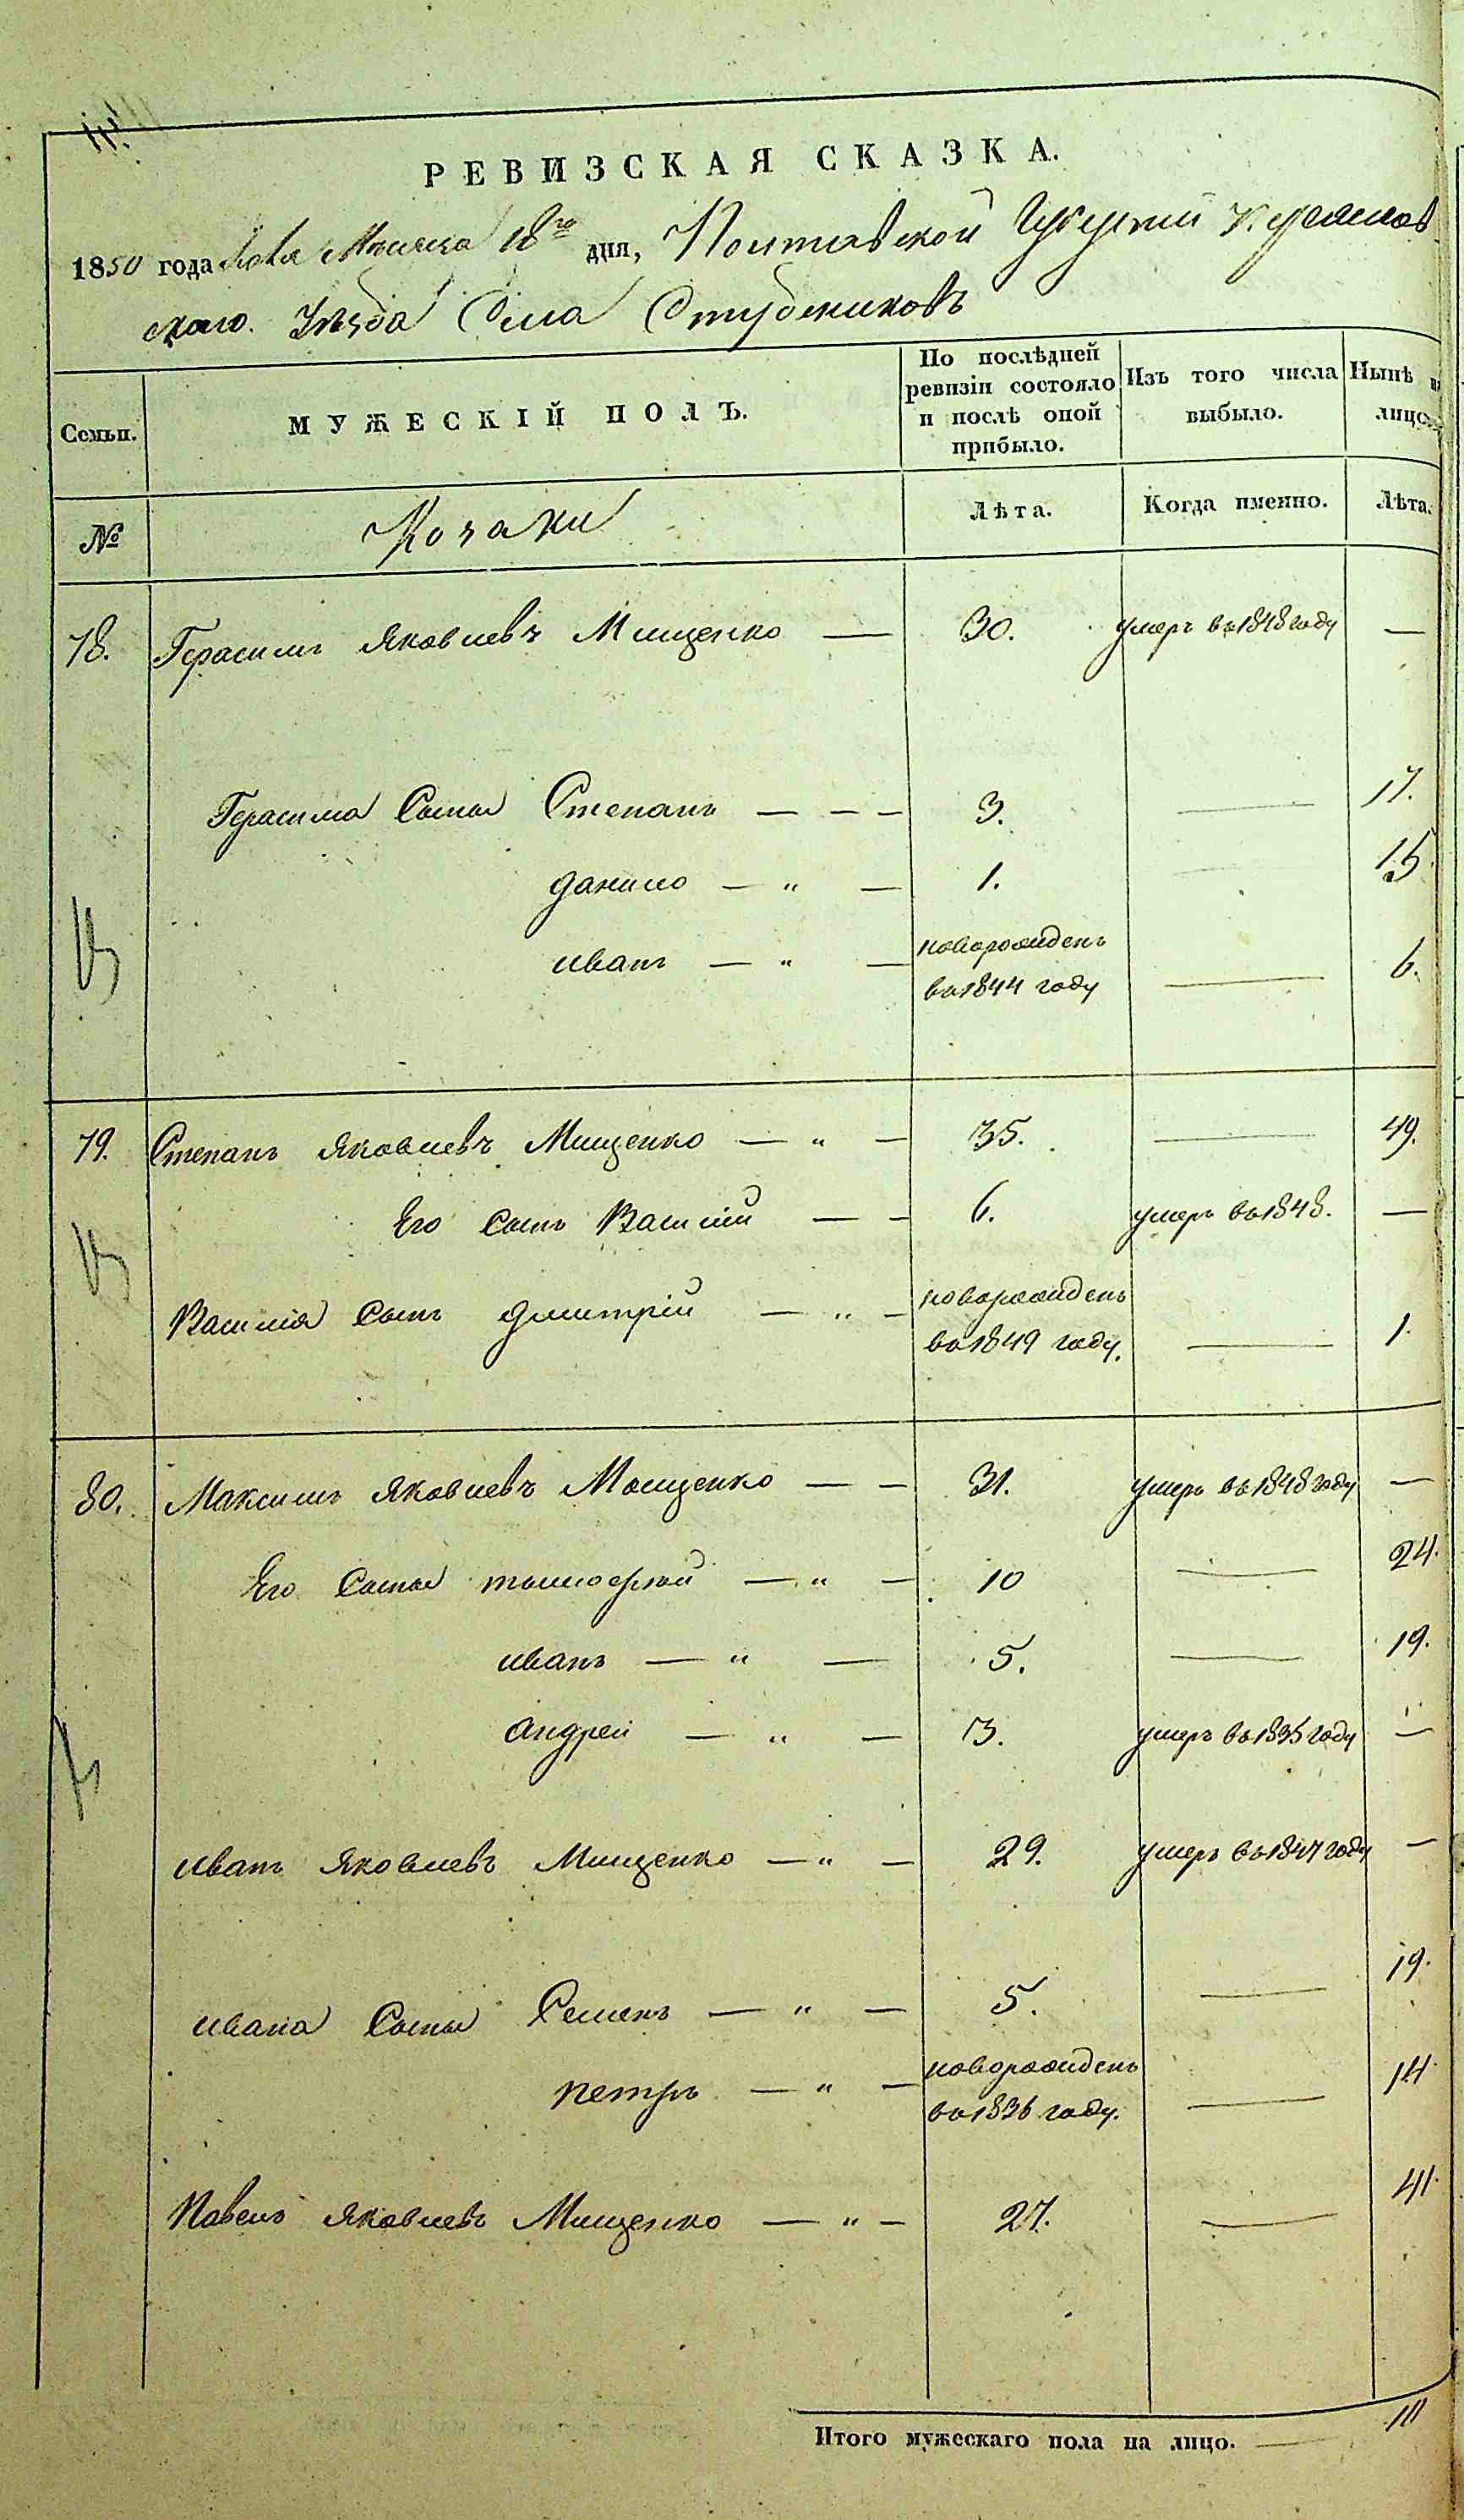 РЕВИЗСКАЯ СКАЗКА.
1850 года Ноя Месяца 18го дня, Полтавской Губернии Кременчуг
скаго. Уѣзда Села
Семьи.
МУЖЕСКІЙ ПОЛЪ.
По послѣдней ревизіи состояло и послѣ оной прибыло.
Изъ того числа выбыло.
Нынѣ на лицо.
№
Козаки
Лѣта.
Когда именно.
Лѣта.
78. Герасимъ Яковлевъ Мищенко — 30. умеръ въ 1848 году —
Герасима Сыны Степанъ — — — 3. — 17.
Данило — „ — 1. — 15.
Иванъ — „ — новорожденъ — 6.
въ 1844 году
79. Степанъ Яковлевъ Мищенко — „ — 35. — 49.
Его Сынъ Василій — — 6. умеръ въ 1848. —
Василія Сынъ Дмитрій — „ — новорожденъ
въ 1849 году. — 1.
80. Максимъ Яковлевъ Мищенко — — 31. умеръ въ 1848 году —
Его Сыны Тимофей — „ — 10 — 24.
Иванъ — „ — 5. — 19.
Андрей — „ — 3. умеръ въ 1835 году —
Иванъ Яковлевъ Мищенко — „ — 29. умеръ въ 1847 году —
Ивана Сыны Семенъ — „ — 5. — 19.
Петръ — „ — новорожденъ — 14.
въ 1836 году.
Павелъ Яковлевъ Мищенко — „ — 27. — 41.
Итого мужескаго пола на лицо. — 10